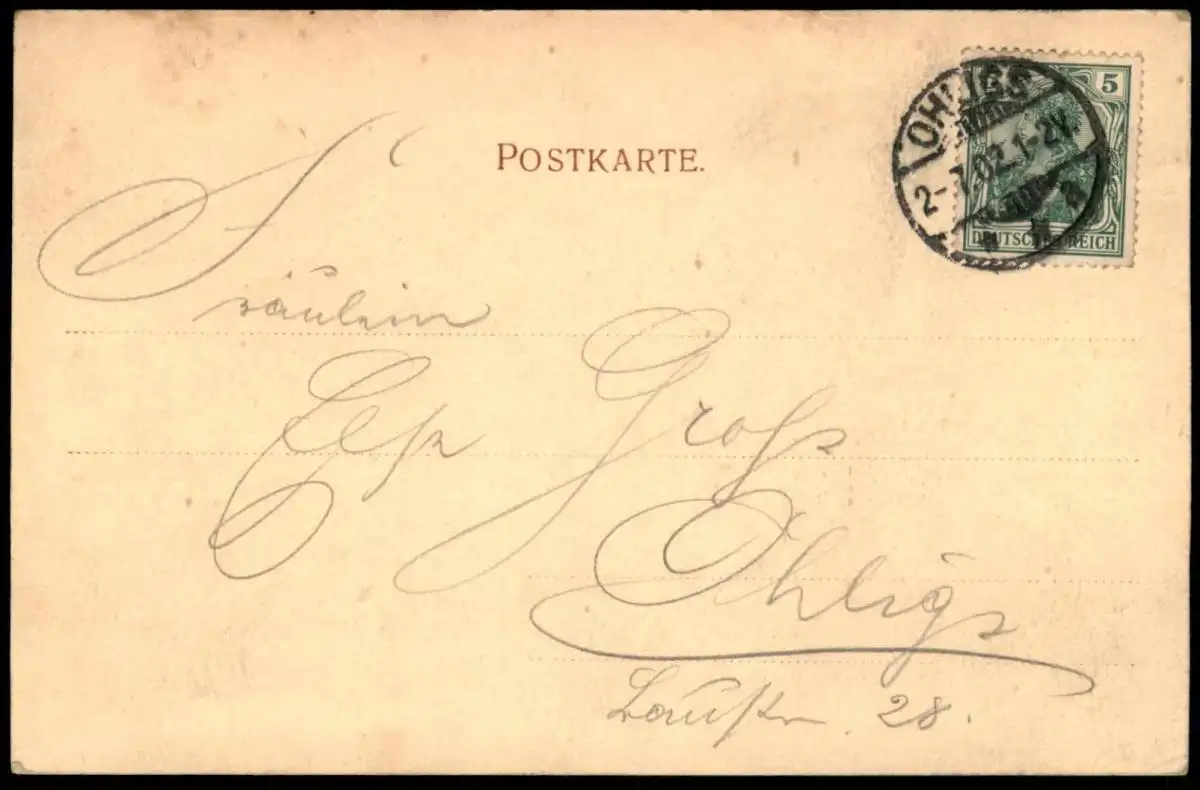 POSTKARTE.
5
DEUTSCHES REICH
OHLIGS
2-1.02.1-2V.
Fräulein
Groß
Ohligs
28.